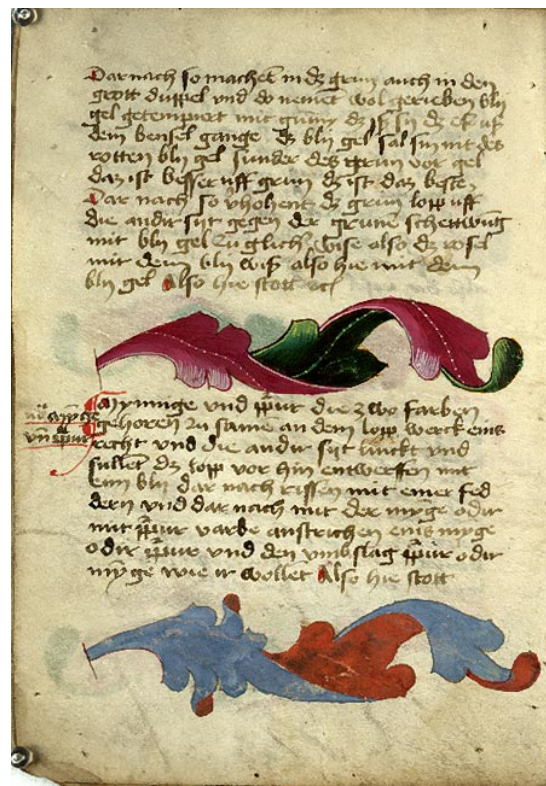 Dar nach so machet in dz grun auch in den
grott duppel und do nemet wol gerieben bly
gel getempert mit gumy dz iß sy dz es uß
dem bensel gange dz bly gel sal sin mit des
rotten bly gel sunder des grun vor gel
daz ist besser uff grun dz ist daz beste
Dar nach so vhohent dz grun lopp uff
die andir siit gegen der grune schettwug
mit bly gel zu glich wise also dz rosel
mit dem bly wiß also hie mit dem
bly gel Also hie stott
Mynnige und ppur die zwo farben
gehoren zu same an dem lopp werck eins
recht und die andir siit linckt und
sullet dz lopp vor hin entwerffen mit
eim bly dar nach rissen mit einer fed
dern und dar nach mit der myge odir
mit ppur varbe anstrichen eins myge
odir ppur und den umbslag ppur odir
myge wie ir wollet Also hie stott